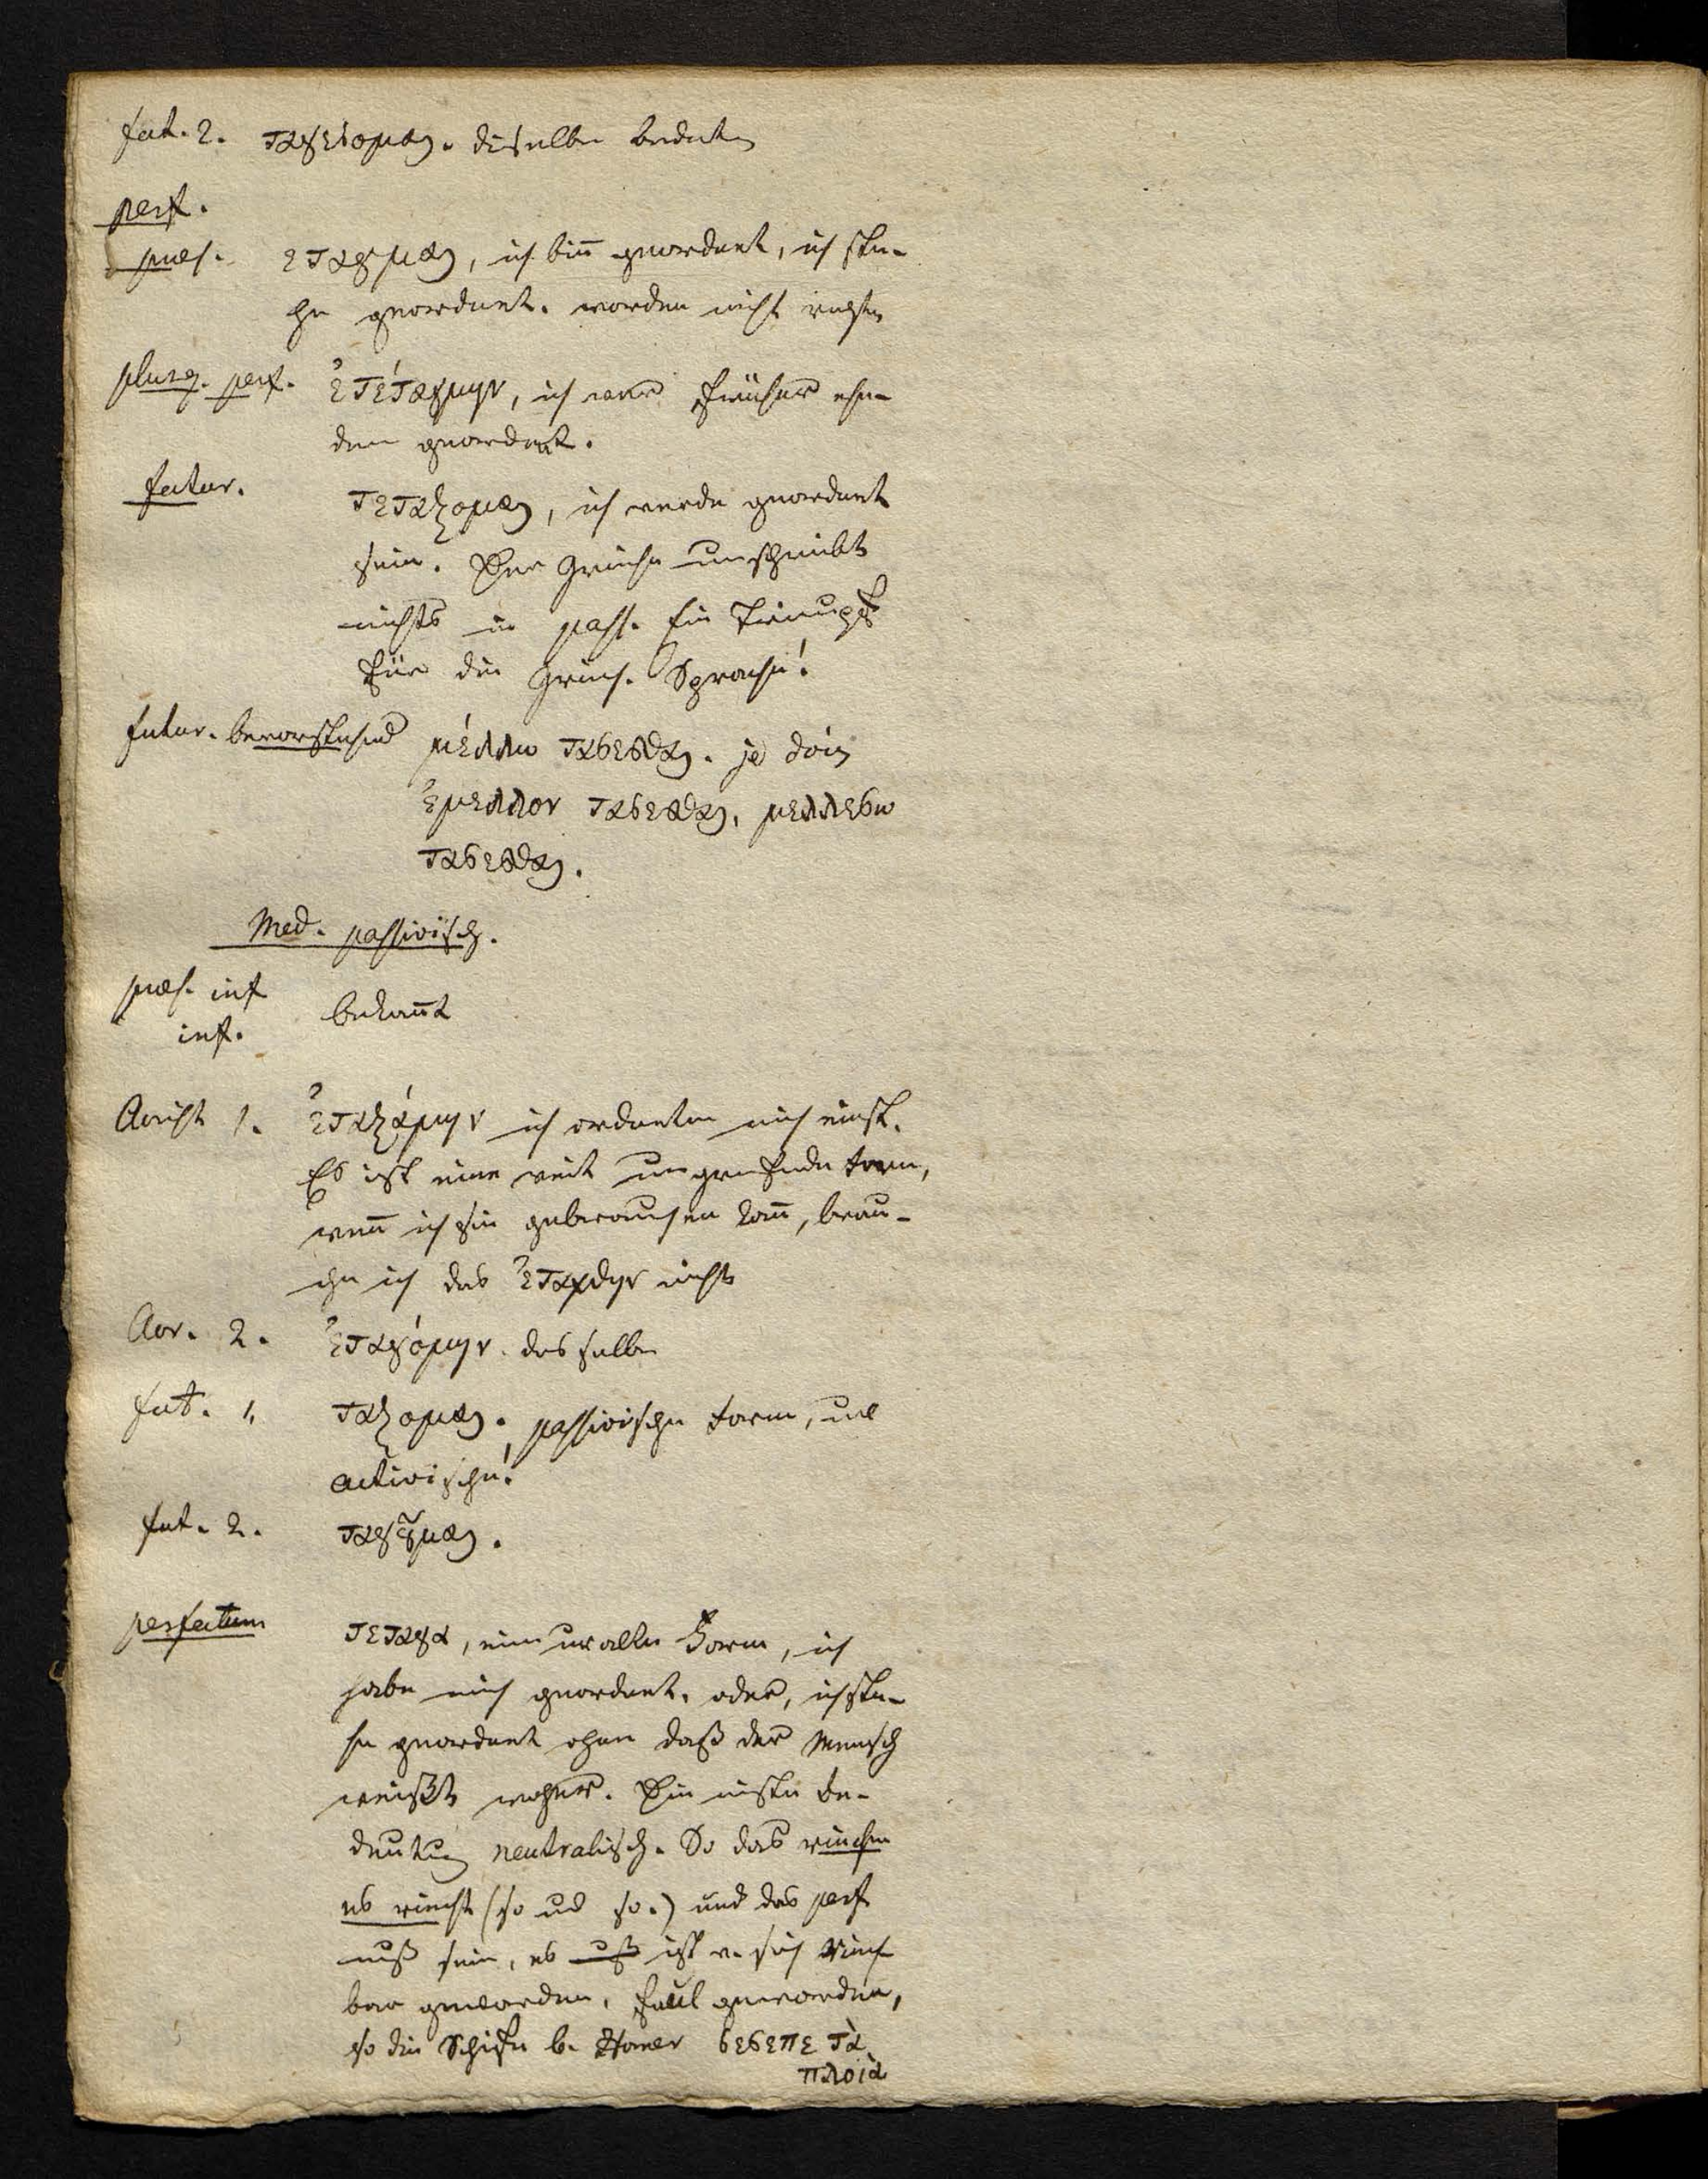 fut. 2. ταγησομαι. dieselbe bedeut.
perf.
praes. ἐταγμαι, ich bin̅ geordnet, ich ste-
he geordnet. worden nicht
plusq. perf. ἐτετάγμην, ich war früher ehe-
dem geordnet.
futur. τεταξομαι, ich werde geordnet
sein. Der Grieche umschreibt
nichts in pass. Ein Triumpf
für die Griech. Sprache!
futur. bevorstehend μέλλω ταςεσθαι. je dois
ἐμελλον ταςεσθαι, μελλεσω
ταςεσθαι.
Med. passivisch.
praes. imf bekan̅t
imf.
Aorist 1. ἐταξάμην ich ordnete mich einst.
Es ist eine weit umgreifende Form,
wen̅ ich sie gebrauchen kan̅, brau-
che ich das ἐταχθην nicht
Aor. 2. ἐταγόμην. dasselbe
fut. 1. ταξομαι. passivische Form, u.
activische!
fut. 2. ταγȣ͂μαι.
perfectum τεταγα, eine uralte Form, ich
habe mich geordnet. oder, ich ste-
he geordnet ohne daß der Mensch
weißt woher. Die meiste Be-
deutung neutralisch. So das riechen
es riecht (so und so.) und das perf
muß sein, es ist v. sich riech
bar geworden, faul geworden,
so die Schiffe b. Homer σεσεπε τὰ
πλοιὰ